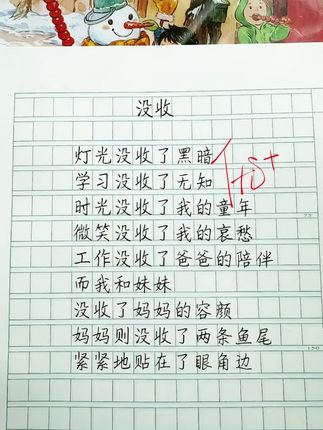 没收
灯光没收了黑暗
学习没收了无知
时光没收了我的童年
微笑没收了我的哀愁
工作没收了爸爸的陪伴
而我和妹妹
没收了妈妈的容颜
妈妈则没收了两条鱼尾
紧紧地贴在了眼角边